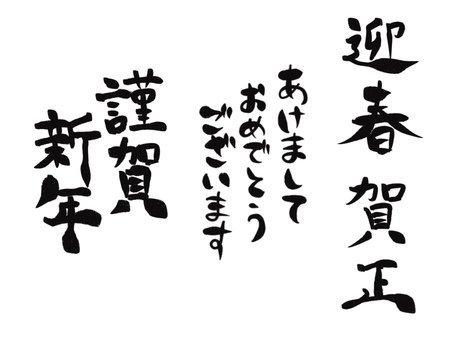 迎春
賀正
あけまして
おめでとう
ございます
謹賀
新年